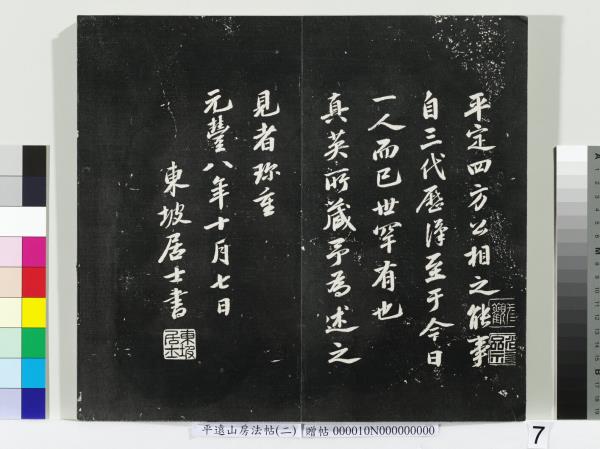 平定四方公相之能事
自三代歷漢至于今日
一人而已世罕有也
真英所藏予為述之
見者珎重
元豐八年十月七日
東坡居士書
東坡居士
平遠山房法帖(二) 贈帖 000010N000000000
7